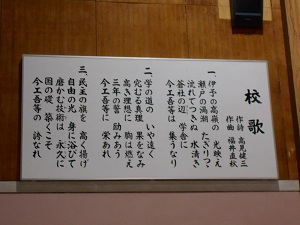 校歌
作詩 高見健三
作曲 福井直秋
一、伊予の高嶺の 光映え
瀬戸の満潮 たぎりつつ
流れてつきぬ 水清き
蒼社の辺 学舎に
今工吾等は 集うなり
二、学の道の いや遠く
究むる真理 果をなみ
高き理想に 胸は燃え
三年の誓 励みあう
今工吾等に 栄あれ
三、民主の旗を 高く揚げ
自由の光 身に浴びて
磨かむ技術は 永久に
国の礎 築くこそ
今工吾等の 誇なれ